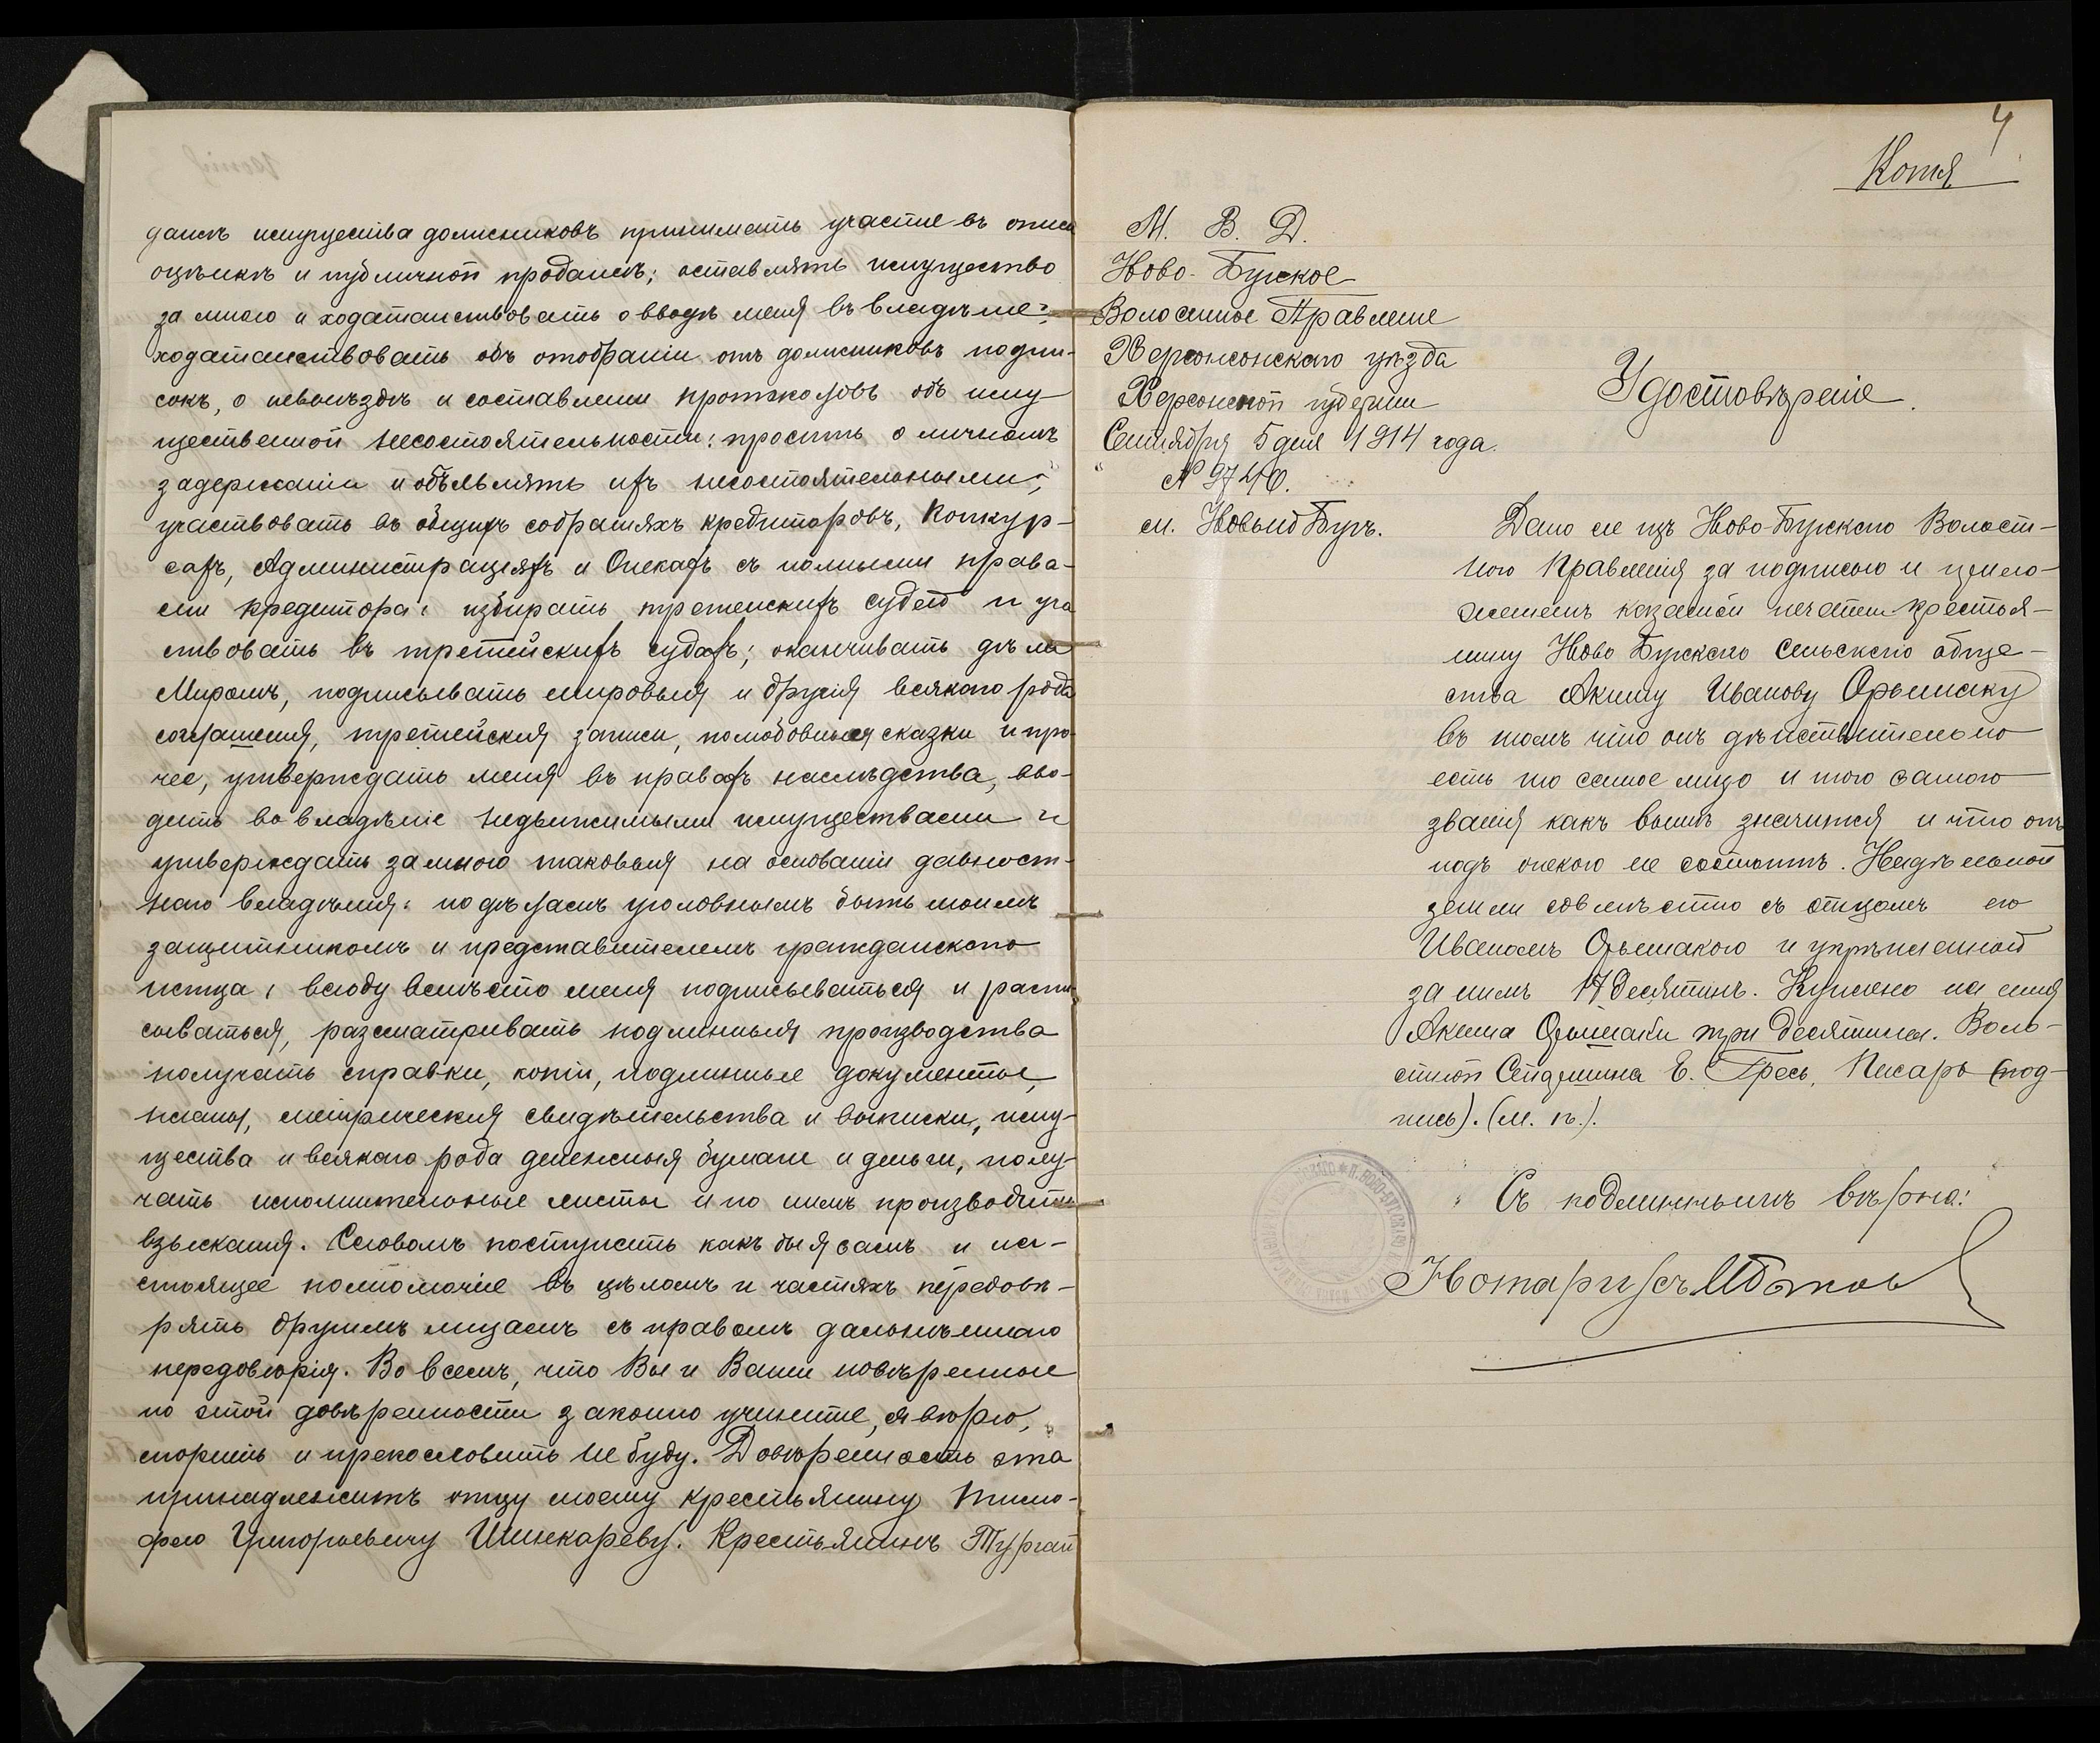 дажѣ имущества должниковъ принимать участіе въ описи
оцѣнкѣ и публичной продажѣ; оставлять имущество
за мною и ходатайствовать о вводѣ меня въ владѣніе;
ходатайствовать объ отобраніи отъ должниковъ подпи-
сокъ, о невыѣздѣ и составленіи протоколовъ объ иму
щественной несостоятельности; просить о личномъ
задержаніи и объявлять ихъ несостоятельными;
участвовать въ общихъ собраніяхъ кредиторовъ, Конкур-
сахъ, Администраціяхъ и Опекахъ съ полными права-
ми кредитора; избирать третейскихъ судей и уча
ствовать въ третейскихъ судахъ; оканчивать дѣла
Миромъ, подписывать мировыя и другія всякаго рода
соглашенія, третейскія записи, полюбовныя сказки и про
чее, утверждать меня въ правахъ наслѣдства, вво-
дить во владѣніе недвижимыми имуществами и
утверждать за мною таковыя на основаніи давност-
наго владѣнія; по дѣламъ уголовнымъ быть моимъ
защитникомъ и представителемъ гражданскаго
истца; всюду вмѣсто меня подписываться и распи
сываться, разсматривать подлинныя производства
получать справки, копіи, подлинные документы,
планы, метрическія свидѣтельства и выписки, иму-
щества и всякаго рода денежныя бумаги и деньги, полу-
чать исполнительные листы и по нимъ производить
взысканія. Словомъ поступить какъ бы я самъ и на-
стоящее полномочіе въ цѣломъ и частяхъ передовѣ-
рять другимъ лицамъ съ правомъ дальнѣйшаго
передовѣрія. Во всемъ, что Вы и Ваши повѣренные
по этой довѣренности законно учините, я вѣрю,
спорить и прекословить не буду. Довѣренность эта
принадлежитъ отцу моему крестьянину Тимо-
фею Григорьевичу Шинкареву. Крестьянинъ Тургай
4
Копія
М. В. Д.
Ново-Бугское
Волостное Правленіе
Херсонскаго уѣзда
Херсонской губерніи
Сентября 5 дня 1914 года.
№ 9740.
м. Новый Бугъ.
Удостовѣреніе.
Дано сіе изъ Ново-Бугскаго Волост-
ного Правленія за подписью и прило-
женіемъ казенной печати крестья-
нину Ново Бугскаго Сельскаго обще-
ства Акиму Иванову
въ томъ что онъ дѣйствительно
есть то самое лицо и того самого
званія какъ выше значится и что онъ
подъ опекою не состоитъ. Надѣльной
земли совмѣстно съ отцомъ его
Иваномъ и укрѣпленной
за нимъ 17 десятинъ. Куплено на имя
Акима три десятины. Воло-
стной Старшина Е. Гресь, Писарь (под-
пись). (М. п.).
Съ подлиннымъ вѣрна:
Нотаріусъ